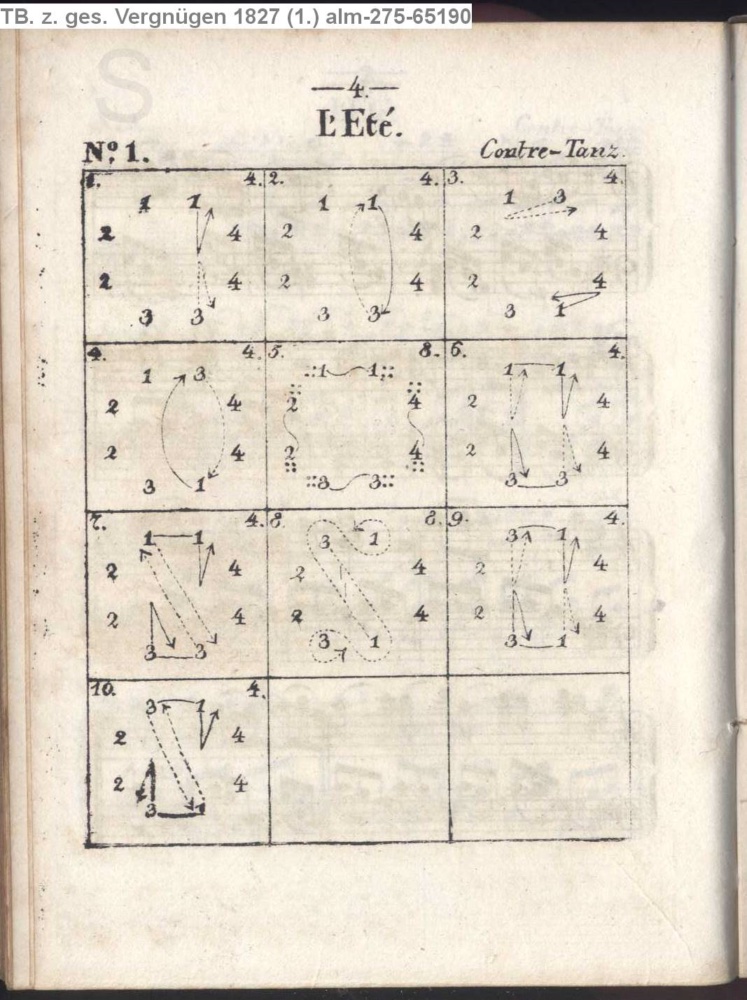 TB. z. ges. Vergnügen 1827 (1.) alm-275-65190
S
—4.—
L'Eté.
Nº. 1.
Contre-Tanz.
1. 4. 2. 4. 3. 4.
1 1 1 1 1 3
2 4 2 4 2 4
2 4 2 4 2 4
3 3 3 3 3 1
4. 4. 5. 8. 6. 4.
1 3 1 1 1 1
2 4 2 4 2 4
2 4 2 4 2 4
3 1 3 3 3 3
7. 4. 8. 8. 9. 4.
1 1 3 1 3 1
2 4 2 4 2 4
2 4 2 4 2 4
3 3 3 1 3 1
10. 4.
3 1
2 4
2 4
3